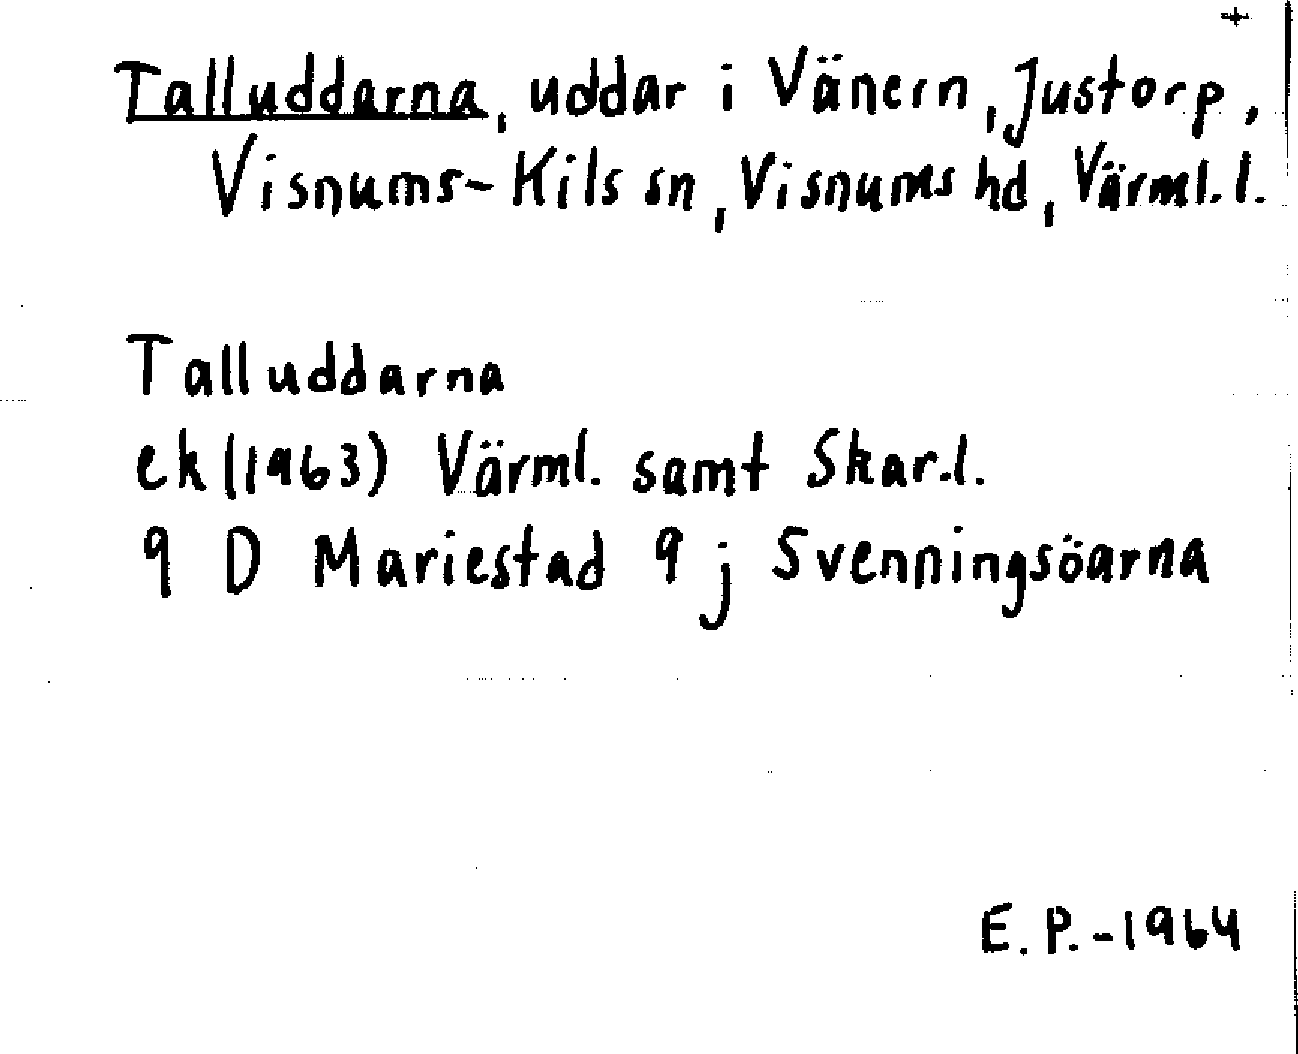 +
Talluddarna, uddar i Vänern, Justorp,
Visnums-Kils sn, Visnums hd, Värml. l.
Talluddarna
ek (1963) Värml. samt Skar.l.
9 D Mariestad 9 j Svenningsöarna
E. P. - 1964